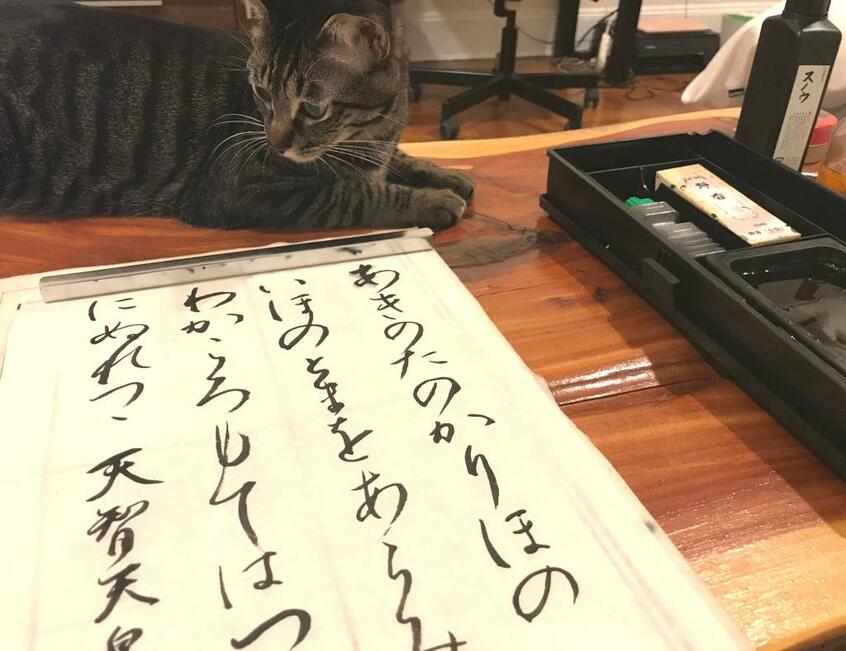 あきのたのかりほの
いほのとまをあらみ
わかころもてはつ
にぬれつゝ 天智天皇
スノウ